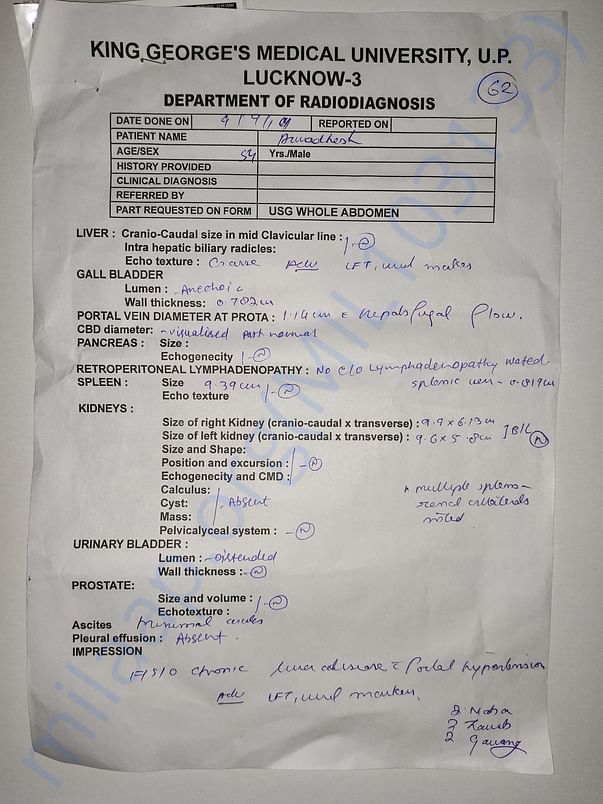 KING GEORGE'S MEDICAL UNIVERSITY, U.P.
LUCKNOW-3
62
DEPARTMENT OF RADIODIAGNOSIS
DATE DONE ON 9/9/ REPORTED ON
PATIENT NAME Awadhesh
AGE/SEX 54 Yrs./Male
HISTORY PROVIDED
CLINICAL DIAGNOSIS
REFERRED BY
PART REQUESTED ON FORM USG WHOLE ABDOMEN
LIVER : Cranio-Caudal size in mid Clavicular line :
Intra hepatic biliary radicles: (N)
Echo texture : Coarse adv LFT, viral makes
GALL BLADDER
Lumen : Anechoic
Wall thickness: 0.782cm
PORTAL VEIN DIAMETER AT PROTA : 1.14cm c hepatofugal flow.
CBD diameter: -visualised part normal
PANCREAS : Size :
Echogenecity (N)
RETROPERITONEAL LYMPHADENOPATHY : No e/o Lymphadenopathy noted.
SPLEEN : Size 9.39cm (N) splenic vein - 0.819cm
Echo texture
KIDNEYS :
Size of right Kidney (cranio-caudal x transverse) : 9.9 x 6.13cm
Size of left kidney (cranio-caudal x transverse) : 9.6 x 5 cm ] B/L (N)
Size and Shape:
Position and excursion : (N)
Echogenecity and CMD :
Calculus:
Cyst: - Absent
Mass:
multiple spleno-
renal collaterals
noted.
Pelvicalyceal system : - (N)
URINARY BLADDER :
Lumen : - Distended
Wall thickness :- (N)
PROSTATE:
Size and volume : (N)
Echotexture :
Ascites Minimal ascites
Pleural effusion : Absent.
IMPRESSION
F/S/O chronic liver disease c Portal hypertension
adv LFT, viral markers.
Neha
Gaurang
milaap.org (MIL1103133)